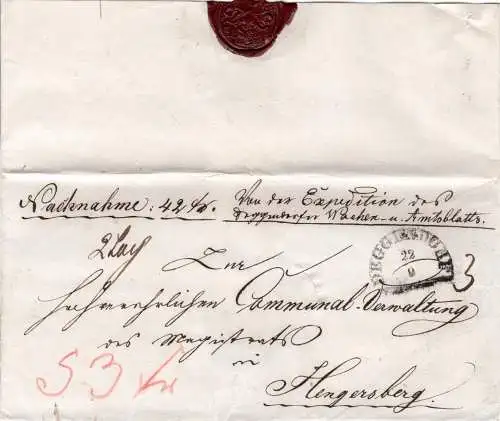 Nachnahme: 42 kr. Von der Expedition des
Deggendorfer Wochen- u. Amtsblatts.
2 Lag
DEGGENDORF
22
9
3
Zur
hochverehrlichen Communal-Verwaltung
des Magistrats
in
Hengersberg.
53 kr